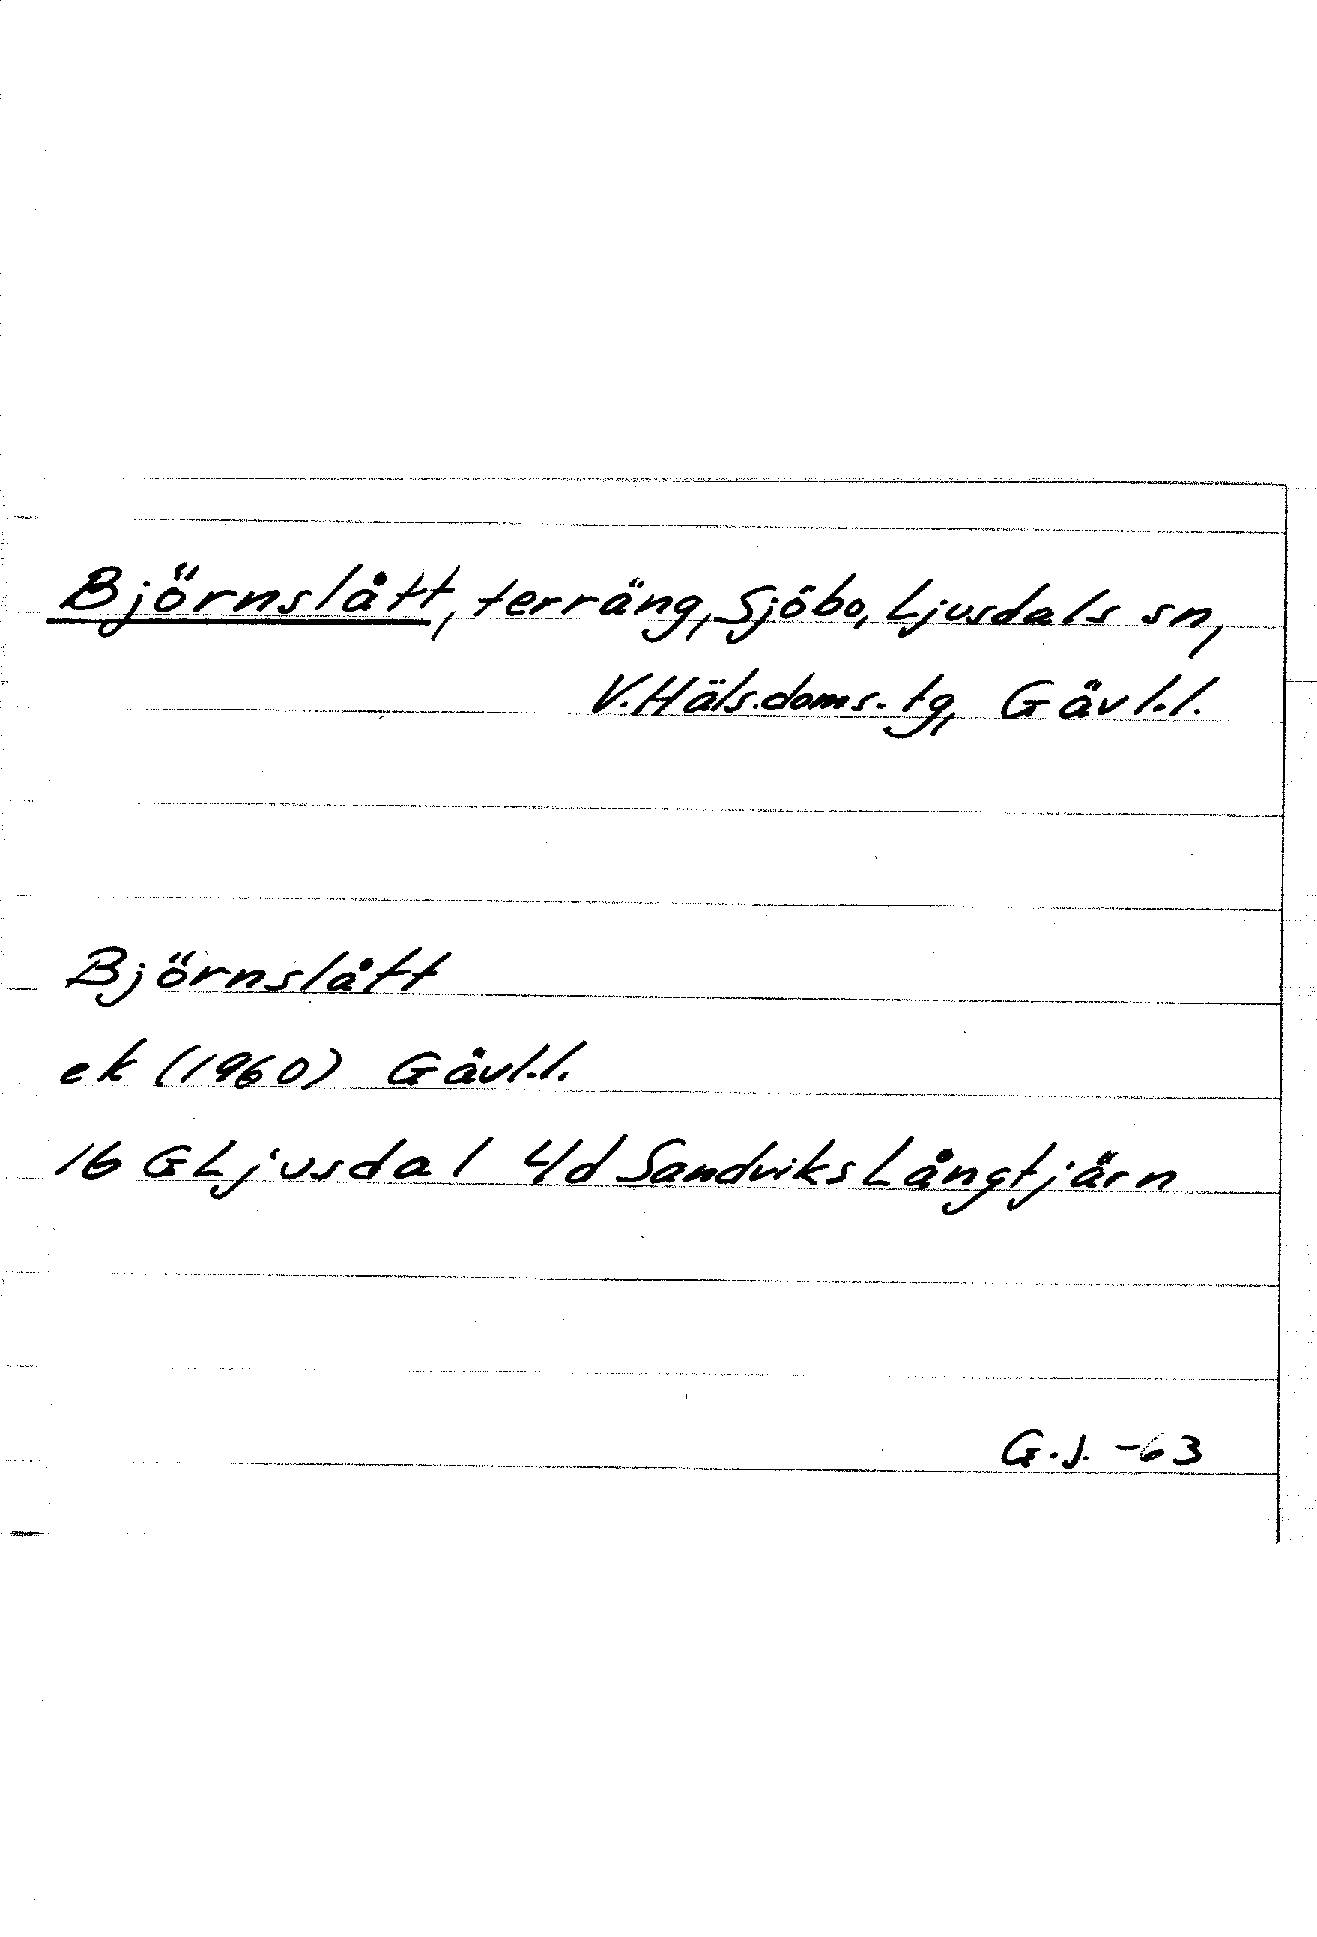 Björnslått, terräng, Sjöbo, Ljusdals sn,
V. Häls. doms. tg, Gävl.l.
Björnslått
ek (1960) Gävl.l.
16 G Ljusdal 4/d Sandviks Långtjärn
G.J. -63